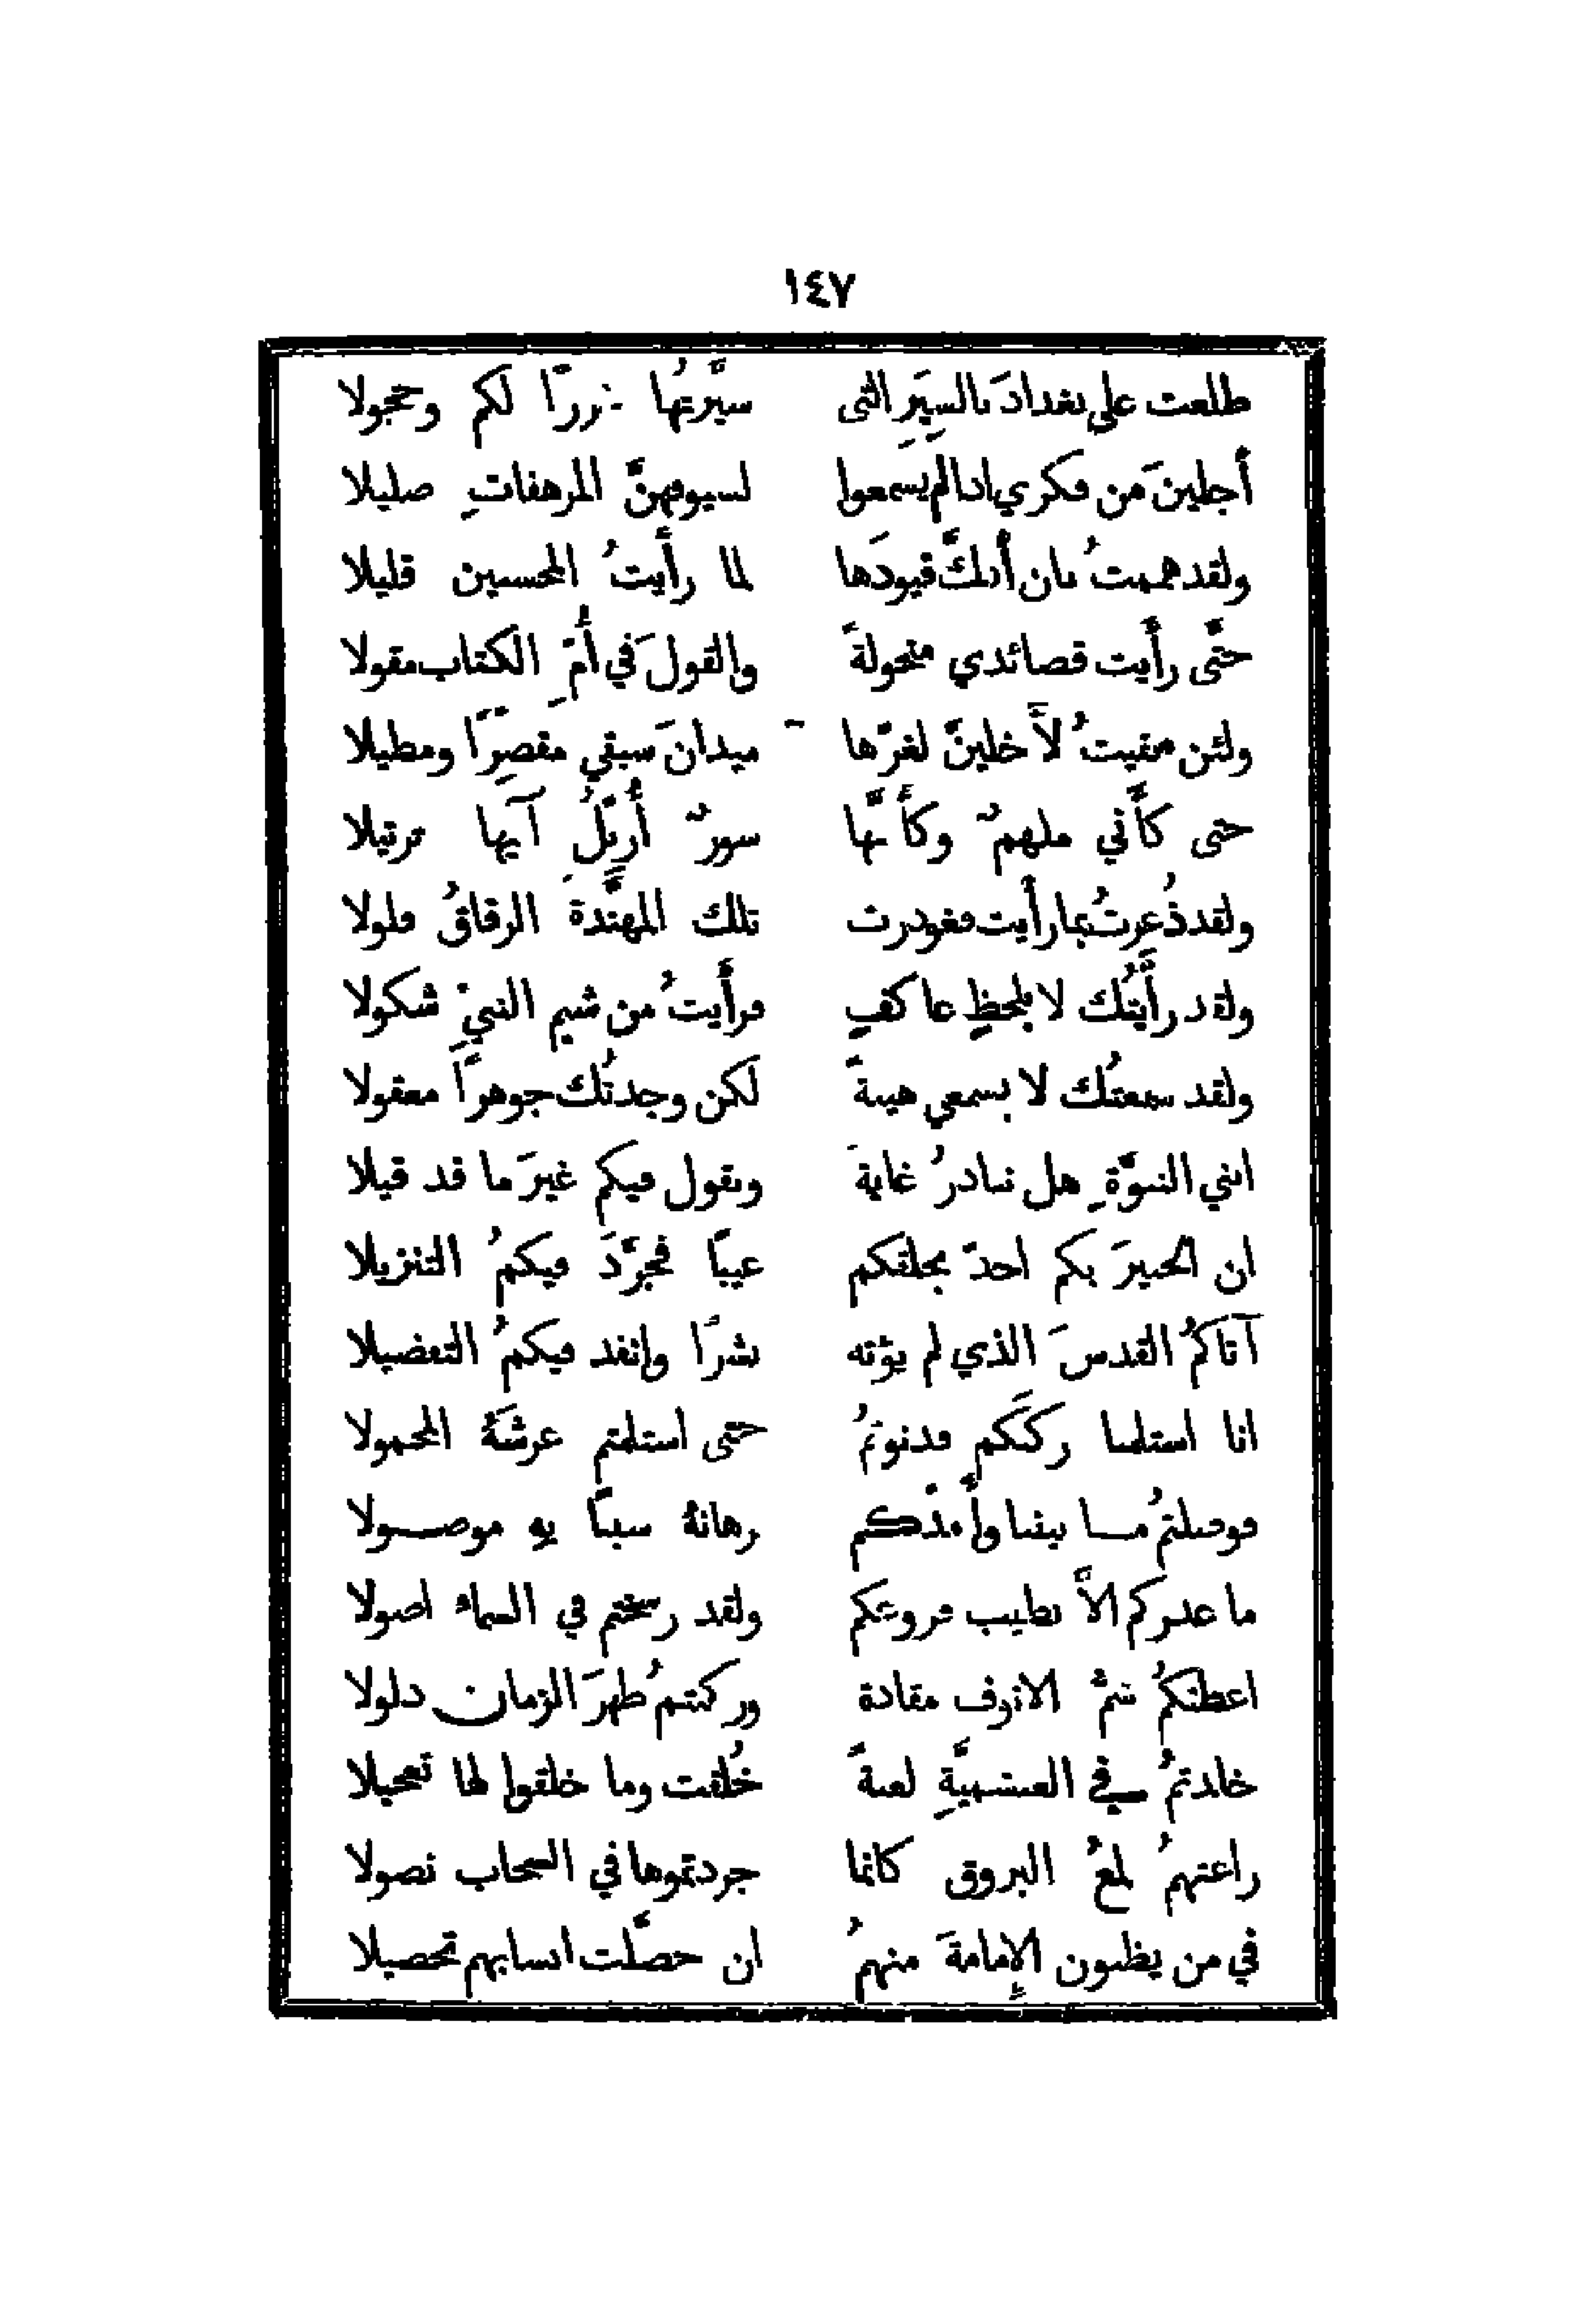 ١٤٧
طلعت على بغدادَ بالسِيَرِ التي سيَّرتُها غررًا لكم وحجولا
أجلينَ من فكري اذا لم يسمعوا لسيوفهنَّ المرهفاتِ صليلا
ولقد هممتُ بان أفكَّ قيودَها لما رأيتُ المحسنين قليلا
حتَّى رأَيت قصائدي منحولةً والقولَ في أُمّ الكتاب مقولا
ولئن بقيتُ لأَخلينّ لغرّها ميدانَ سبقي مقصِرًا ومطيلا
حتى كأَّني ملهمٌ وكأَنَّها سورٌ أُرتّلُ آيها ترتيلا
ولقد ذُعرتُ بما رأَيت فغودرت تلك المهنَّدةَ الرقاقُ فلولا
ولقد رأَيتُك لا بلحظٍ عاكفٍ فرأَيتُ من شيم النبيّ شكولا
ولقد سمعتُك لا بسمعي هيبةً لكن وجدتُك جوهرًا معقولا
ابني النبوَّةِ هل نبادرُ غايةً ونقول فيكم غيرَ ما قد قيلا
ان الخبيرَ بكم اجدّ بخلقكم غيبًا فجرّدَ فيكمُ التنزيلا
آتاكمُ القدسَ الذي لم يؤته بشرًا وانفد فيكمُ التفضيلا
انا استلمنا ركنَكم ودنوتمُ حتى استلمتم عرشَهُ المحمولا
فوصلتمُ ما بيننا وأَمدّكم برهانهُ سببًا بهِ موصولا
ما عذركم الاَّ تطيب فروعكم ولقد رسختم في السماء اصولا
اعطتكمُ شمُّ الانوف مقادةً وركبتمُ ظهرَ الزمان ذلولا
خلدتمُ في العبشميَّةِ لعنةً خُلقت وما خلقوا لها تعجيلا
راعتهمُ لمعُ البروق كانما جردتموها في السحاب نصولا
في من يظنون الإمامةَ منهمُ ان حصَّلت انسابهم تحصيلا